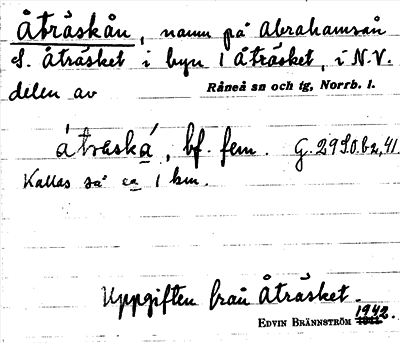 Åträskån, namn på Abrahamsån
S. Åträsket i byn 1 Åträsket, i N.V.
delen av Råneå sn och tg, Norrb. l.
åträskǻ, bf. fem. G. 29
Kallas så ca 1 km.
Uppgiften från Åträsket.
1942.
EDVIN BRÄNNSTRÖM 1941